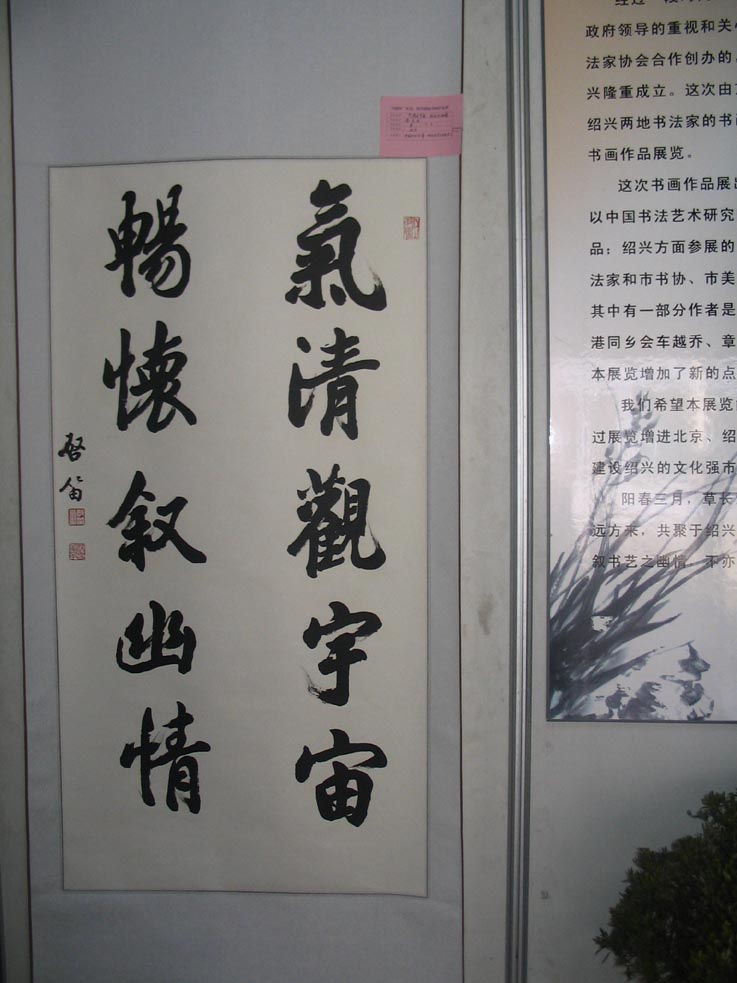 氣清觀宇宙
暢懷叙幽情
啓笛
政府领导的重视和关
法家协会合作创办的
兴隆重成立。这次由
绍兴两地书法家的书
书画作品展览。
这次书画作品展
以中国书法艺术研究
品；绍兴方面参展的
法家和市书协、市美
其中有一部分作者是
港同乡会车越乔、章
本展览增加了新的点
我们希望本展览
过展览增进北京、绍
建设绍兴的文化强市
阳春三月，草长
远方来，共聚于绍兴
叙书艺之幽情，不亦